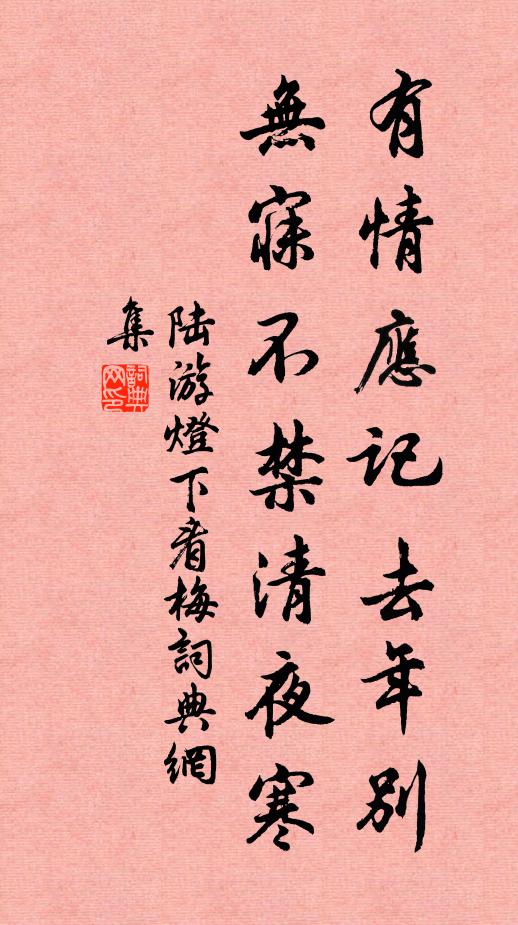 有情應記去年別
無寐不禁清夜寒
陆游燈下看梅詞典網
集
詞典网印